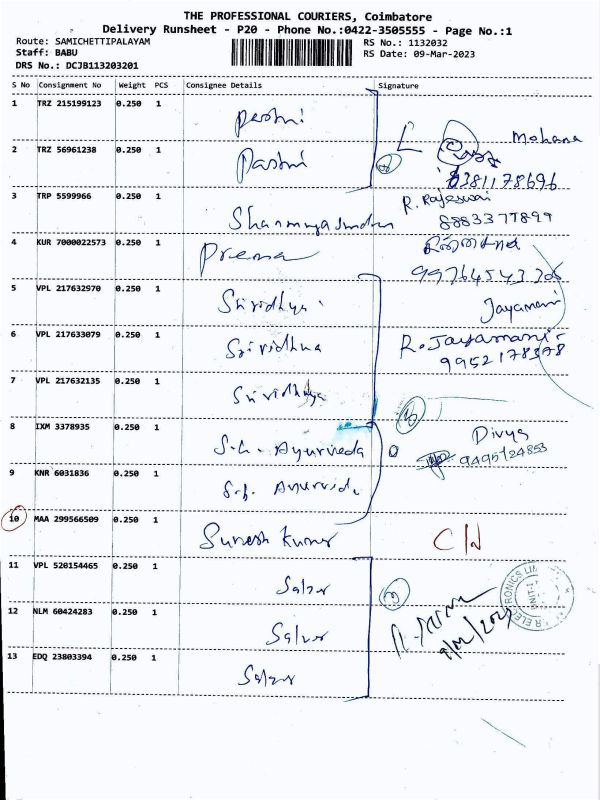 THE PROFESSIONAL COURIERS, Coimbatore
Delivery Runsheet - P20 - Phone No.:0422-3505555 - Page No.:1
Route: SAMICHETTIPALAYAM
Staff: BABU
DRS No.: DCJB113203201
RS No.: 1132032
RS Date: 09-Mar-2023
S No Consignment No Weight PCS Consignee Details Signature
1 TRZ 215199123 0.250 1
Mohana
2 TRZ 56961238 0.250 1 Pashni
8381178696
3 TRP 5599966 0.250 1
R. Rajeswari
8883377899
4 KUR 7000022573 0.250 1 Prema
5 VPL 217632970 0.250 1 Srividhya
Jayamani
6 VPL 217633079 0.250 1 Srividhya
R. Jayamani
9952178378
7 VPL 217632135 0.250 1 Srividhya
8 IXM 3378935 0.250 1 S.h. Ayurveda
Divya
9495124853
9 KNR 6031836 0.250 1 S.h. Ayurveda
10 MAA 299566509 0.250 1 Suresh Kumar
11 VPL 520154465 0.250 1 Salzer
12 NLM 60424283 0.250 1 Salzer
13 EDQ 23803394 0.250 1 Salzer